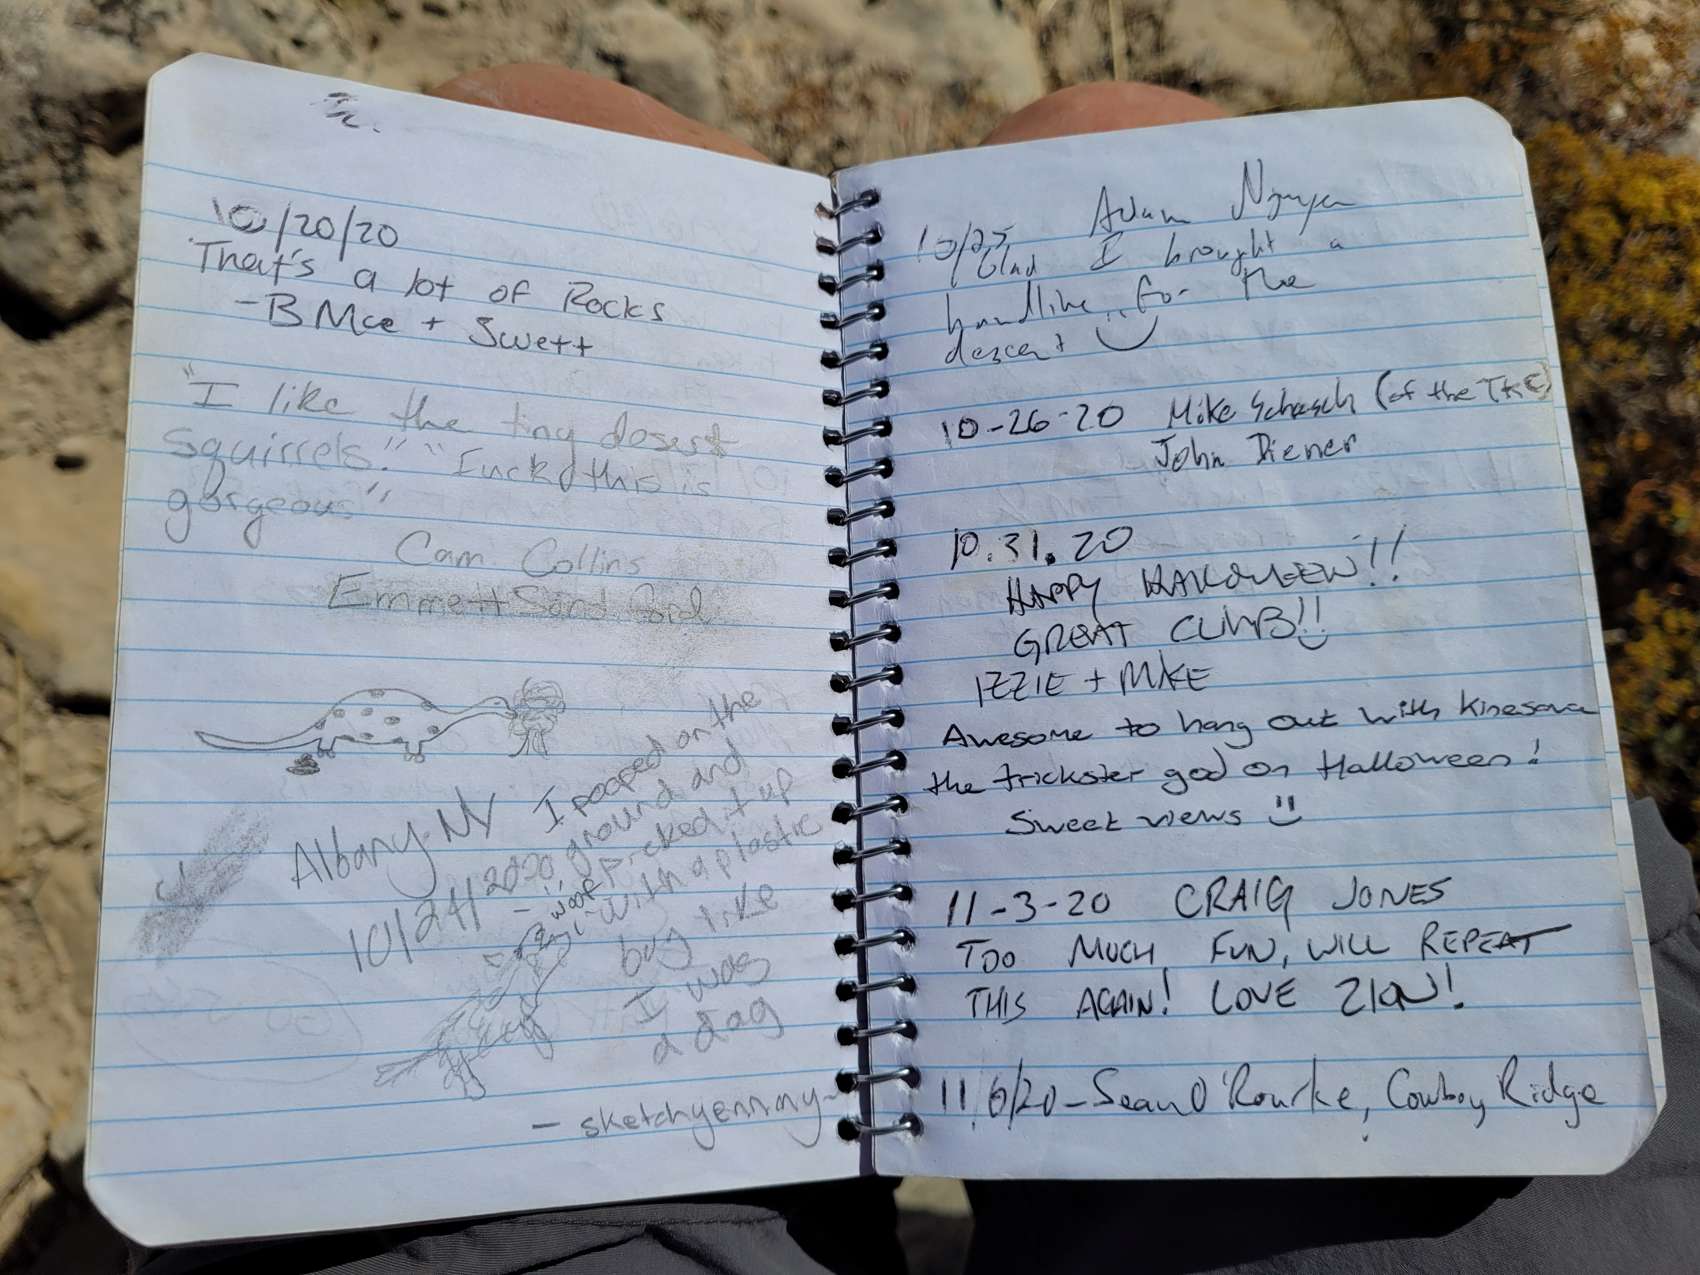 10/20/20
That's a lot of Rocks
- B Mce + Swett
"I like the tiny desert
squirrels." "Fuck this is
gorgeous"
Cam Collins
Emmett
Albany NY
10/24/2020
I pooped on the
ground and
Picked it up
with a plastic
bag like
I was
a dog
- "woof"
- sketchyemmy-
Adam Nguyen
10/25
Glad I brought a
handline for the
descent
10-26-20 Mike (of the TKE)
John Diener
10.31.20
HAPPY HALLOWEEN!!
GREAT CLIMB!!
IZZIE + MIKE
Awesome to hang out with Kinesava
the trickster god on Halloween!
Sweet views
11-3-20 CRAIG JONES
TOO MUCH FUN, WILL REPEAT
THIS AGAIN! LOVE ZION!
11/6/20 - Sean O'Rourke, Cowboy Ridge